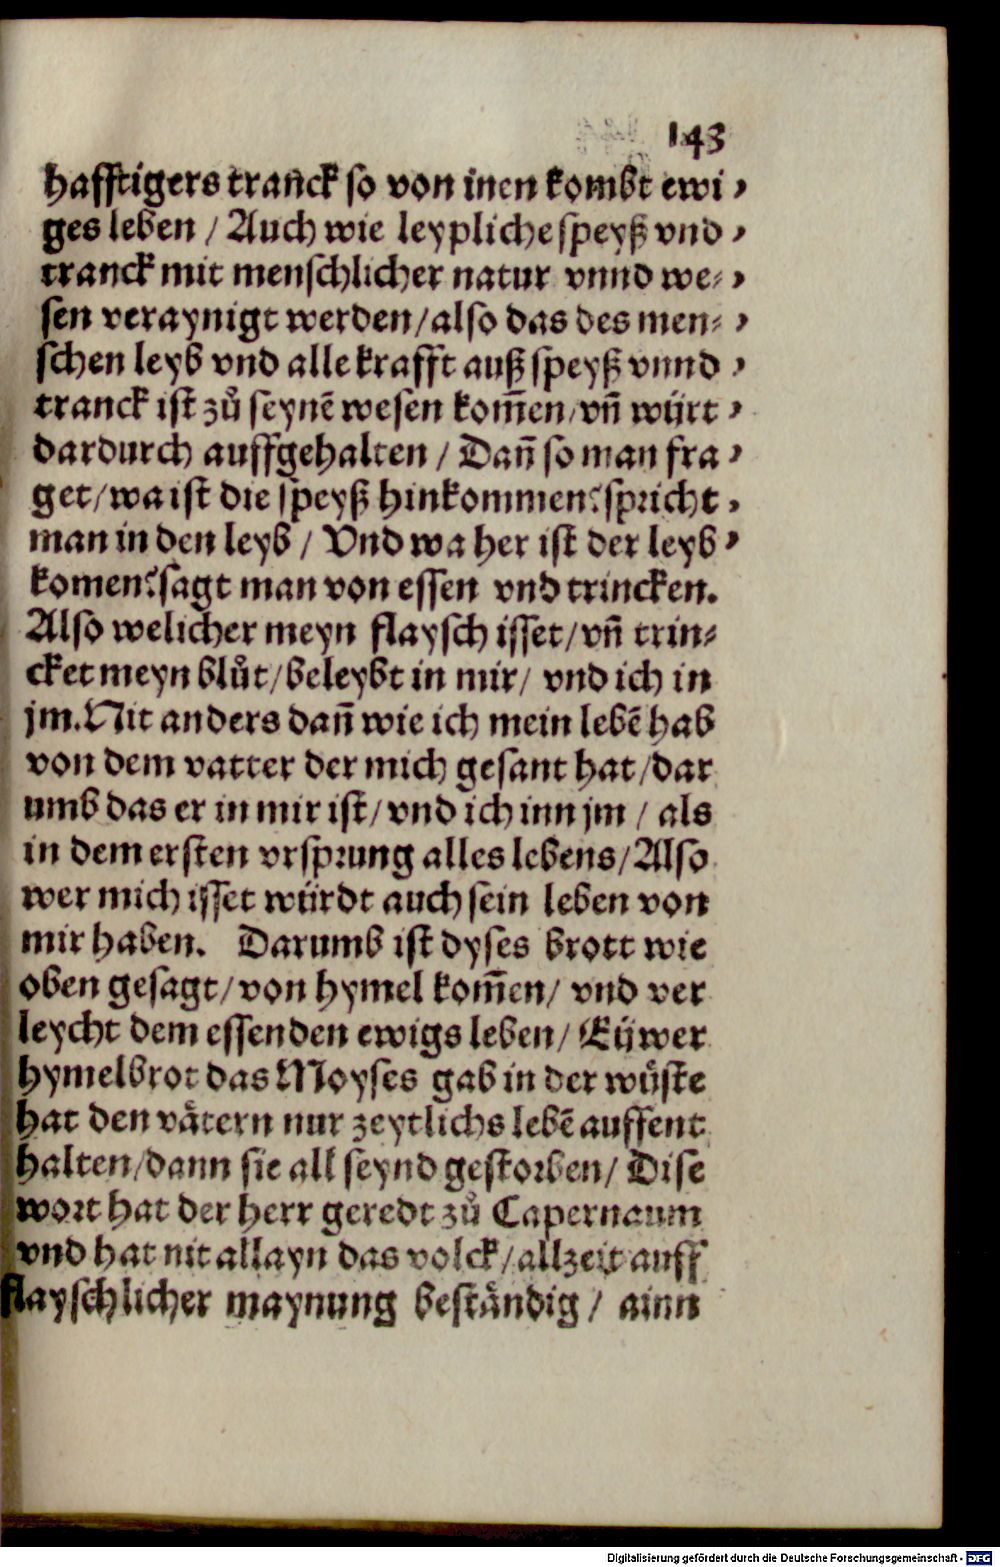 143
hafftigers tranck so von inen kombt ewi ,
ges leben / Auch wie leypliche speyß vnd ,
tranck mit menschlicher natur vnnd we⸗ ,
sen veraynigt werden/also das des men⸗ ,
schen leyb vnd alle krafft auß speyß vnnd ,
tranck ist zuͦ seynē wesen kom̄en/vn̄ würt ,
dardurch auffgehalten / Dan̄ so man fra ,
get/wa ist die speyß hinkommen?spricht ,
man in den leyb / Vnd wa her ist der leyb ,
komen?sagt man von essen vnd trincken.
Also welicher meyn flaysch isset/vn̄ trin⸗
cket meyn bluͦt/beleybt in mir/ vnd ich in
jm.Nit anders dan̄ wie ich mein lebē hab
von dem vatter der mich gesant hat/dar
umb das er in mir ist/vnd ich inn jm / als
in dem ersten vrsprung alles lebens/Also
wer mich isset würdt auch sein leben von
mir haben. Darumb ist dyses brott wie
oben gesagt/von hymel kom̄en/ vnd ver
leycht dem essenden ewigs leben/ Eüwer
hymelbrot das Moyses gab in der wuͤste
hat den vaͤtern nur zeytlichs lebē auffent
halten/dann sie all seynd gestorben/ Dise
wort hat der herr geredt zuͦ Capernaum
vnd hat nit allayn das volck/allzeit auff
flayschlicher maynung bestaͤndig/ ainn
Digitalisierung gefördert durch die Deutsche Forschungsgemeinschaft - DFG